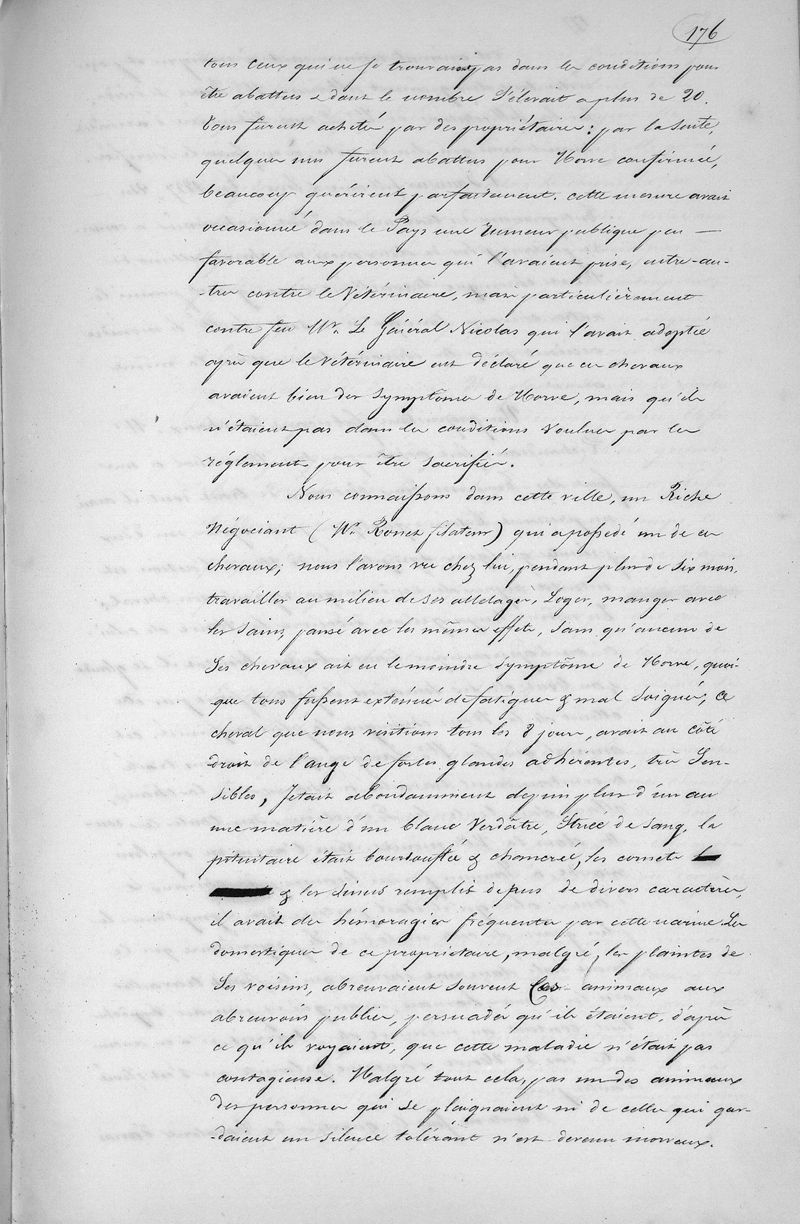 176
tous ceux qui ne se trouvaient pas dans les conditions pour
être abattus & dont le nombre s'élevait a plus de 20.
Tous furent achetés par des propriétaires; par la suite,
quelques uns furent abattus pour Morve confirmée,
beaucoup guérirent parfaitement. cette mesure avait
occasionné dans le Pays une rumeur publique peu —
favorable aux personnes qui l'avaient prise, entre-au-
-tres contre le Vétérinaire, mais particulièrement
contre feu Mr. Le Général Nicolas qui l'avait adoptée
après que le Vétérinaire eut déclaré que ces chevaux
avaient bien des Symptomes de Morve, mais qu'ils
n'étaient pas dans les conditions voulues par les
réglements pour être sacrifiés.
Nous connaissons dans cette ville, un Riche
Négociant (Mr. filateur) qui a possédé un de ces
chevaux; nous l'avons vu chez lui, pendant plus de six mois,
travailler au milieu de ses attelages, Loger, manger avec
les sains, pansé avec les mêmes effets, sans qu'aucun de
Ses chevaux ait eu le moindre symptôme de Morve, quoi-
que tous fussent exténués de fatigues & mal soignés, Ce
cheval que nous visitions tous les 8 jours, avait au côté
droit de l'auge de fortes glandes adhérentes, très Sen-
sibles, Jetait abondamment depuis plus d'un an
une matière d'un blanc Verdâtre, Striée de sang, la
pituitaire était boursouflée & chancrée, les cornets
& les sinus remplit de pus de divers caractères,
il avait des hémoragies fréquentes par cette narine. Les
domestiques de ce propriétaire, malgré, les plaintes de
Ses voisins, abreuvaient souvent Ces animaux aux
abreuvoirs publics, persuadés qu'ils étaient, d'après
ce qu'ils voyaient, que cette maladie n'était pas
contagieuse. Malgré tout cela, pas un des animaux
des personnes qui se plaignaient ni de celles qui gar-
-daient un silence tolérant n'est devenu morveux.